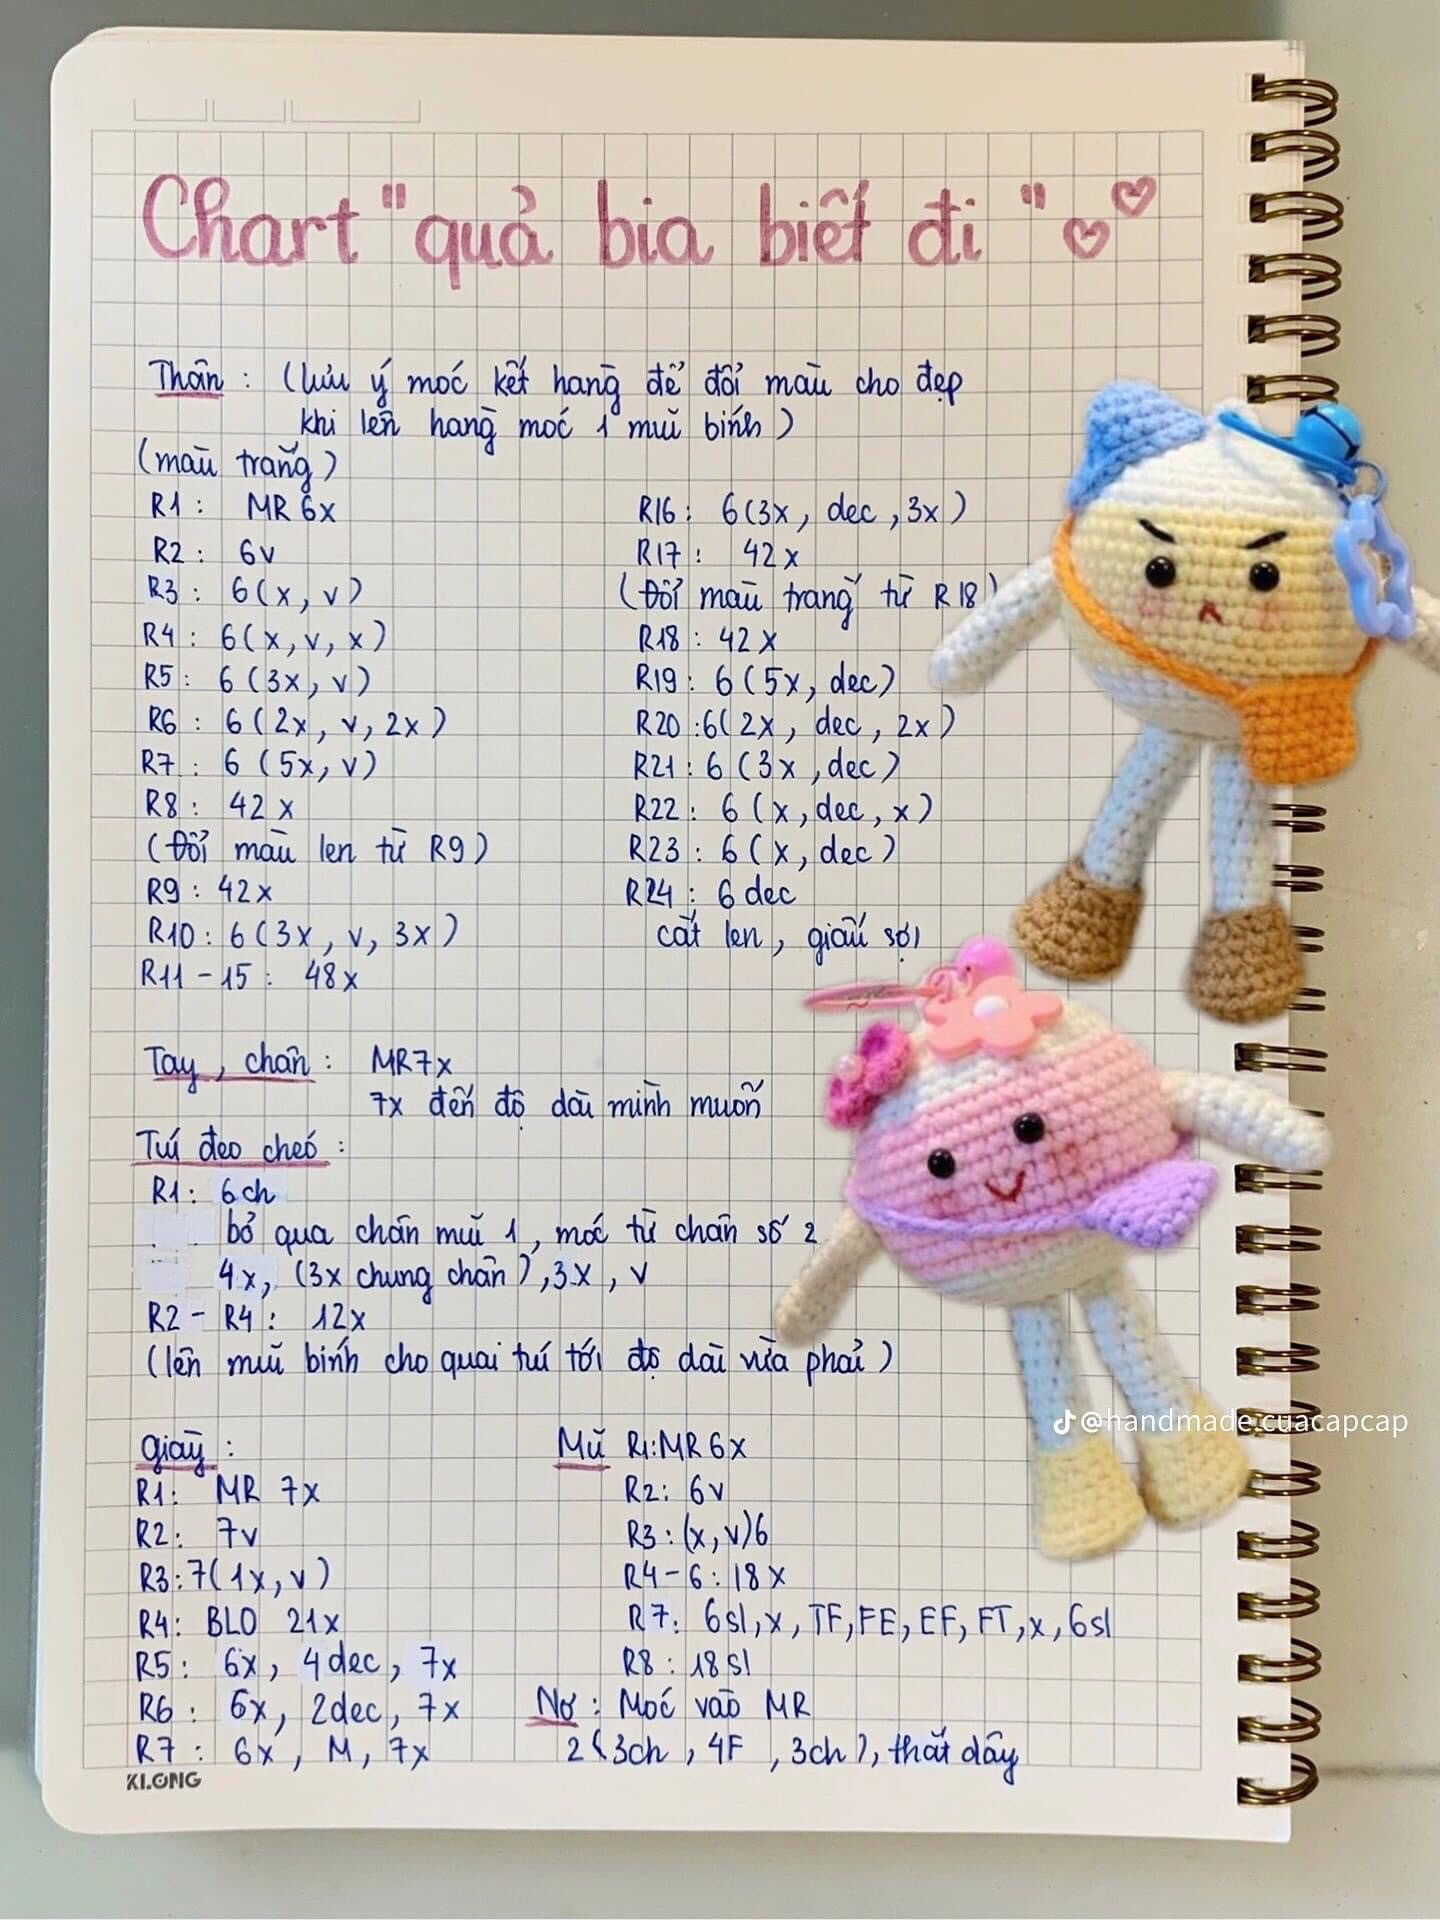 Chart "quả bia biết đi" ♡♡
Thân : (lưu ý móc kết hàng để đổi màu cho đẹp
khi lên hàng móc 1 mũi bính)
(màu trắng)
R1 : MR 6x
R2 : 6v
R3 : 6(x, v)
R4 : 6(x, v, x)
R5 : 6 (3x, v)
R6 : 6 (2x, v, 2x)
R7 : 6 (5x, v)
R8 : 42 x
(Đổi màu len từ R9)
R9 : 42x
R10 : 6(3x, v, 3x)
R11 - 15 : 48x
R16 : 6(3x, dec, 3x)
R17 : 42x
(Đổi màu trắng từ R18)
R18 : 42x
R19 : 6 (5x, dec)
R20 : 6( 2x, dec, 2x)
R21 : 6 (3x, dec)
R22 : 6 (x, dec, x)
R23 : 6 (x, dec)
R24 : 6 dec
cắt len, giấu sợi
Tay, chân : MR7x
7x đến độ dài mình muốn
Túi đeo chéo :
R1 : 6ch
bỏ qua chân mũi 1, móc từ chân số 2
4x, (3x chung chân), 3x, v
R2 - R4 : 12x
(lên mũi bính cho quai túi tới độ dài vừa phải)
giày :
R1: MR 7x
R2: 7v
R3: 7(1x, v)
R4: BLO 21x
R5: 6x, 4dec, 7x
R6: 6x, 2dec, 7x
R7: 6x, M, 7x
Mũ R1: MR 6x
R2: 6v
R3: (x, v)6
R4-6: 18x
R7: 6sl, x, TF, FE, EF, FT, x, 6sl
R8: 18sl
Nơ : Móc vào MR
2(3ch, 4F, 3ch), thắt dây
KLONG
@handmade.cuacapcap